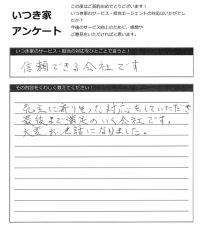 いつき家
アンケート
この度はご契約おめでとうございます！
いつき家のサービス・担当エージェントの対応はいかがでしたか？
今後のサービス向上のために、感想やご意見をいただければと思います。
いつき家のサービス・担当の対応をひとことで言うと！
信頼できる会社です
その内容をくわしく教えてください！
売主に寄り添った対応をしていただき
最後まで満足のいく会社です。
大変お世話になりました。